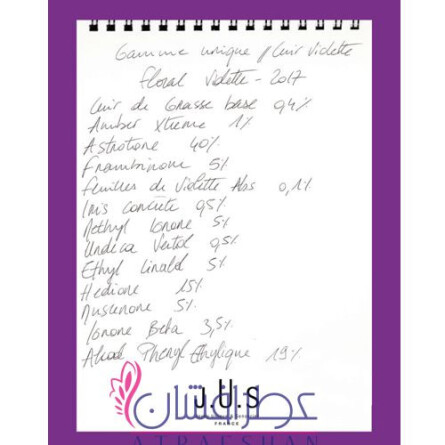 Gamme unique // Cuir Violette
Floral Violette - 2017
Cuir de Grasse base 0,4%
Amber Xtreme 1%
Astrotone 40%
Frambinone 5%
Feuilles de Violette Abs 0,1%
Iris concrète 0,5%
Methyl Ionone 5%
Undeca Vertol 0,5%
Ethyl Linalol 5%
Hedione 15%
Muscenone 5%
Ionone Beta 3,5%
Alcool Phenyl Ethylique 19%
J.U.S
FRANCE
عطرافشان
ATRAFSHAN